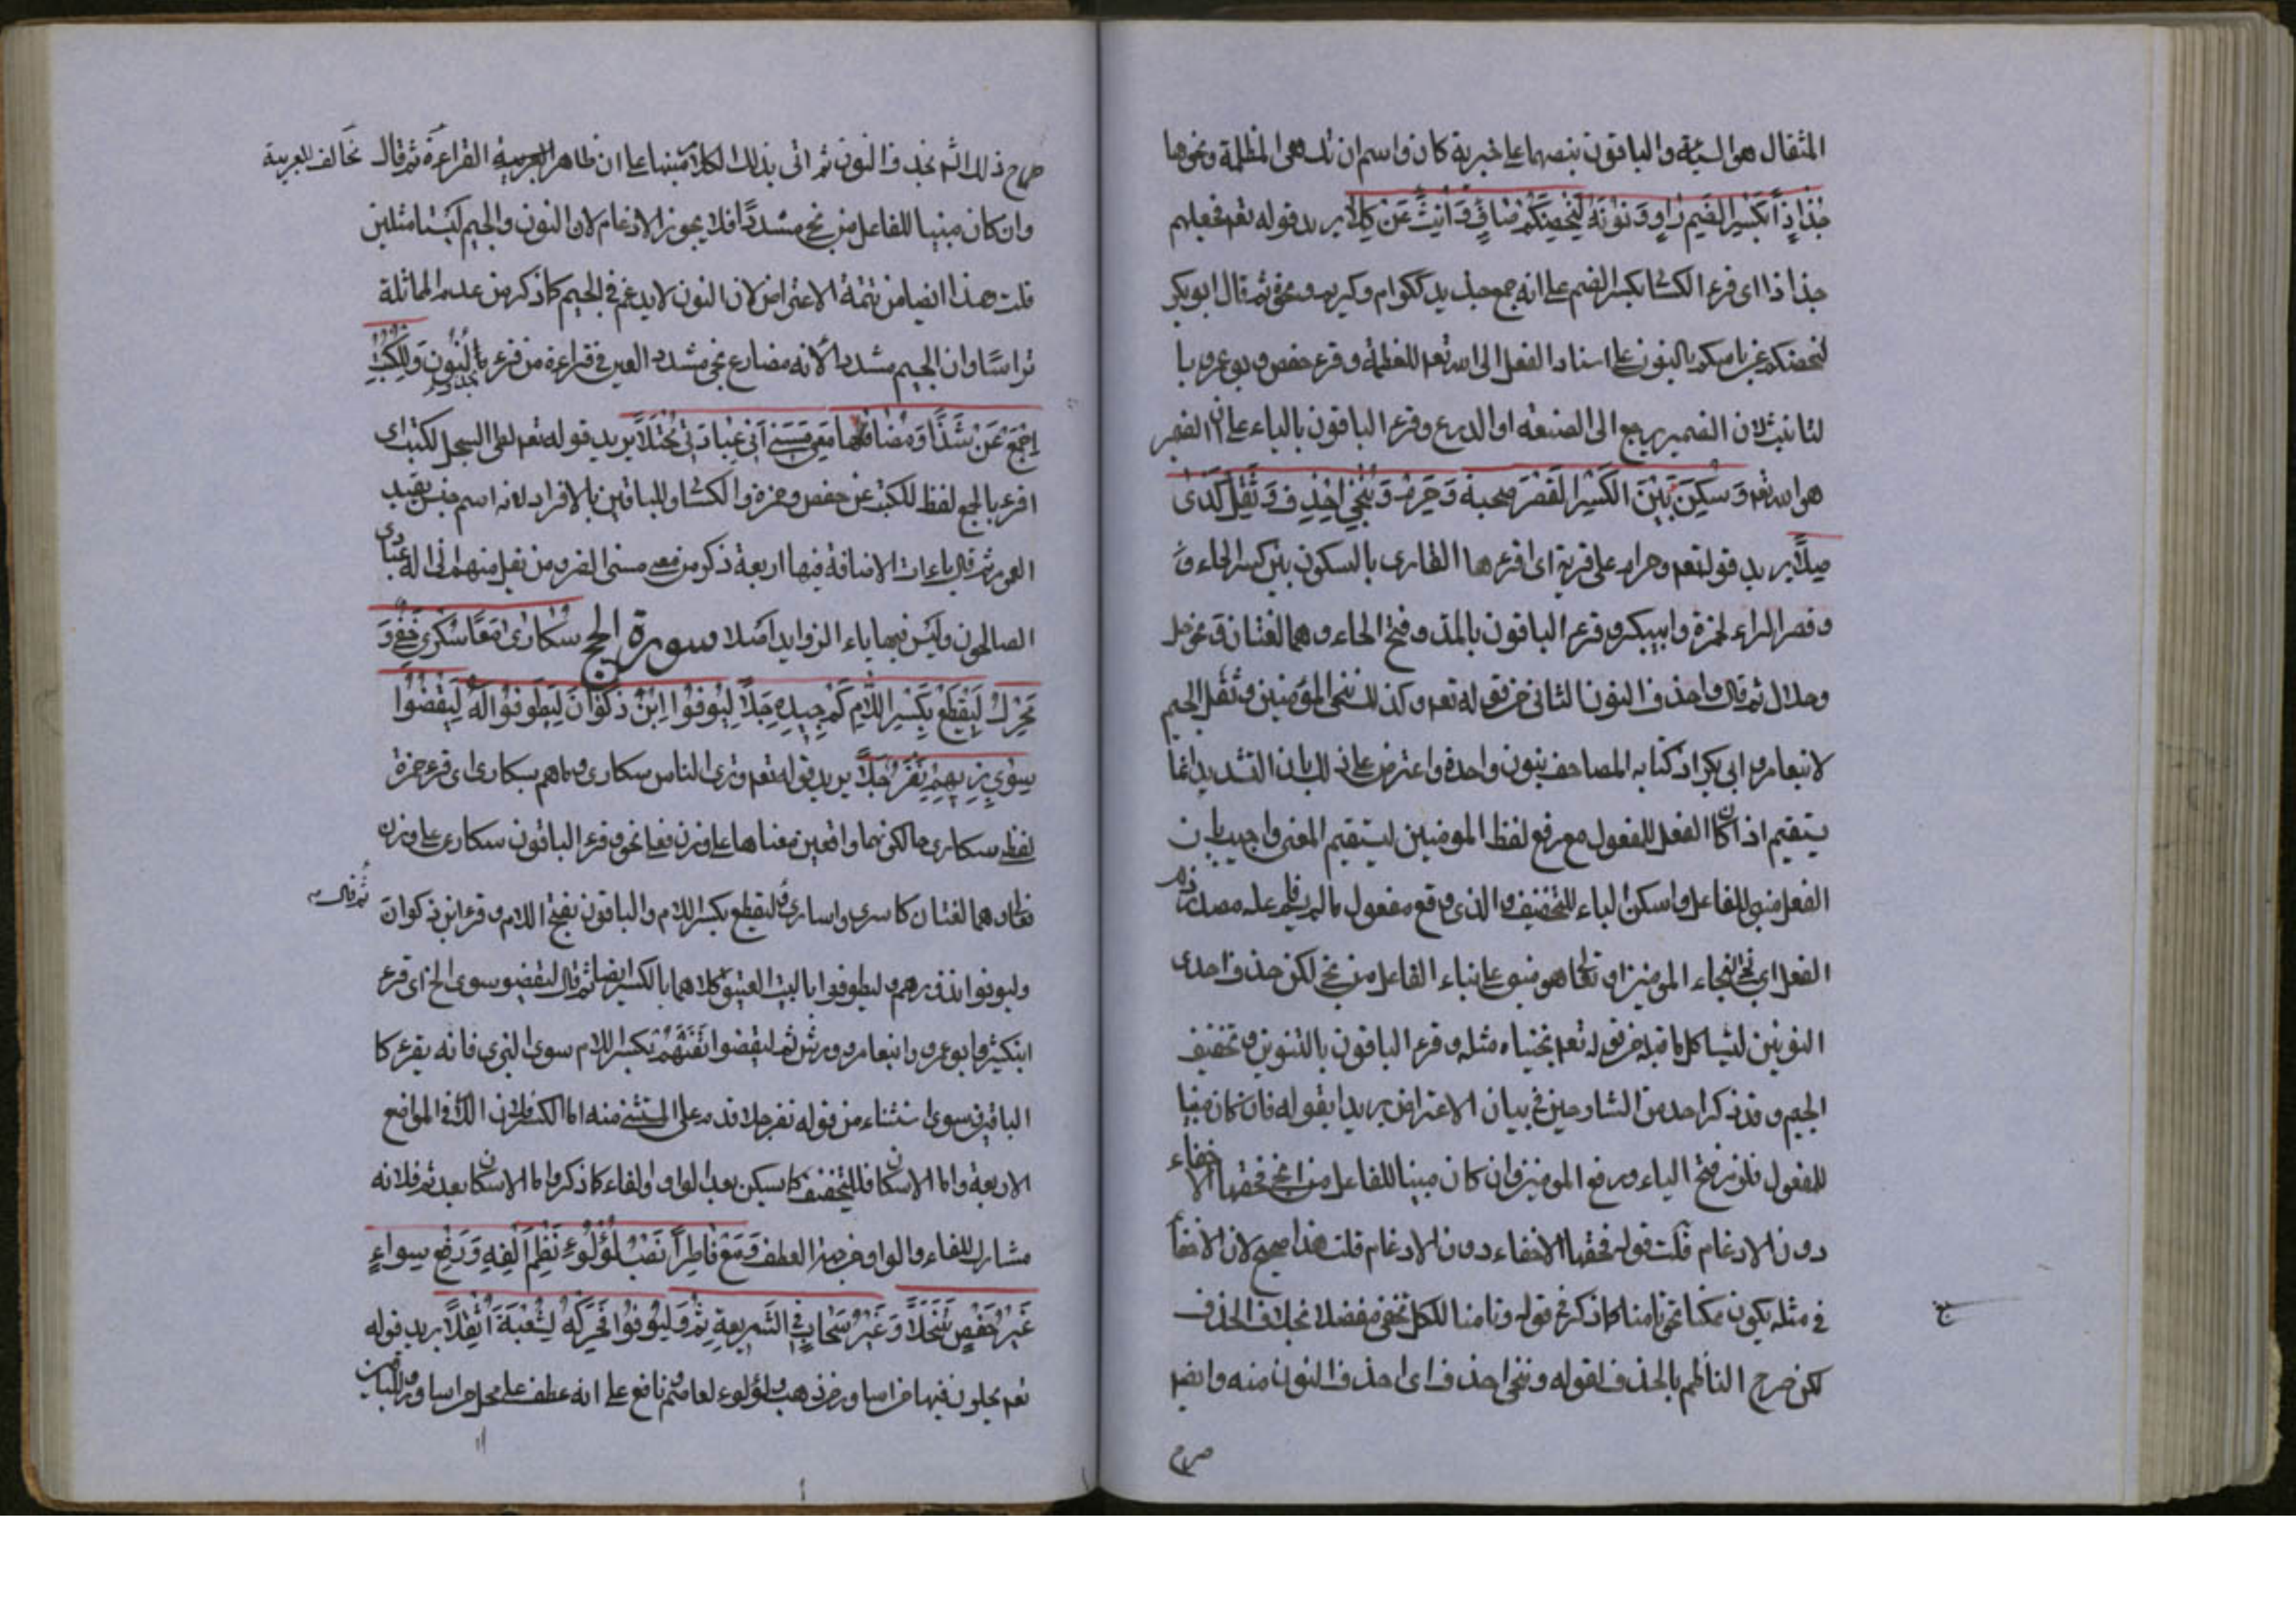 المثقال هو السيئة والباقون بنصبهما على خبرية كان واسم ان تك هي المظلمة ونحوها
جذاذا بكسر الضم راو ونونه ليحصنكم صافى وانث عن كلا يريد قوله تعم فجعلهم
جذاذا اى قرء الكسا بكسر الضم على انه جمع جذيذ ككرام وكريم وضمه ثم قال ابو بكر
لنحصنكم من باسكم بالنون على اسناد الفعل الى الله تعم للعظمة وقرء حفص و بو عمرو با
لتانيث لان الضمير يرجع الى الصنعة او الدرع وقرء الباقون بالياء على ان الضمير
هو الله تعم وسكن بين الكسر القصر صحبة وحرم وننجى احذف وثقل كذى
صلا يريد قوله تعم وحرام على قرية اى اقرءها القارى بالسكون بين كسر الحاء و
وقصر الراء لحمزة وابيبكر وقرء الباقون بالمد وفتح الحاء وهما لغتان نحو حل
وحلال ثم قال واحذف النون الثانى من قوله تعم وكذلك ننجى المؤمنين وثقل الجيم
لابنعامر وابى بكر اذ كتابه المصاحف بنون واحدة واعترض على ذلك بان التشديد انما
يستقيم اذا كان الفعل للمفعول مع رفع لفظ المومنين ليستقيم المعنى واجيب بان
الفعل مبنى للفاعل واسكن الياء للتخفيف والذى وقع مفعول مالم يسم فاعله مصدر
الفعل اى نجى النجاء المومنين او هو مبنى على بناء الفاعل من نجى لكن حذف احدى
النونين لتشاكل ما قبله من قوله تعم نجيناه مثله وقرء الباقون بالتنوين وتخفيف
الجيم وقد ذكر احد من الشارحين فى بيان الاعتراض يريد بقوله فان كان مبنيا
للمفعول فلزم فتح الياء ورفع المومنين وان كان مبينا للفاعل من انجى فحقها الاخفاء
دون الادغام قلت قوله فحقها الاخفاء دون الادغام قلت هذا صحيح لان الاخفا
فى مثله يكون ممكنا نحو تامنا كما ذكر فى قوله وتامنا للكل تخفى مفصلا بخلاف الحذف
لكن صرح الناظم بالحذف لقوله وننجى احذف اى احذف النون منه وايضا
صرح
صرح ذلك الشم بحذف النون ثم اتى بذلك الكلام منبها على ان ظاهر القراءة ثم قال تخالف العربية
وان كان مبنيا للفاعل من نجى مشددا فلا يجوز الادغام لان النون والجيم ليستا مثلين
قلت هذا ايضا من تتمة الاعتراض لان النون لا يدغم فى الجيم كما ذكر من عدم المماثلة
وان الجيم مشددا لانه مضارع نجى مشدد العين فى قراءة من قرء بالنون وللكتب
اجمع عن شذا ومضافها معى مسنى انى عبادى مجتلا يريد قوله تعم لطى السجل لكتب اى
اقرء بالجمع لفظ للكتب عن حفص وحمزة والكسا وللباقين بالافراد لانه اسم جنس يفيد
العموم ثم قال ياءات الاضافة فيها اربعة ذكر من معى مسنى الضر ومن يقل منهم انى اله عبادى
الصالحون وليس فيها ياء الزوايد اصلا سورة الحج سكارى معا سكرى شفا و
محرك ليقطع بكسر اللام كم جيده حلا ليوفوا ابن ذكوان ليطوفوا له ليقضوا
سوى بزيهم نفر جلا يريد قوله تعم وترى الناس سكارى وما هم بسكارى اى قرء حمزة
لفظ سكارى حالكونها واقعين معناها على وزن فعلى نحو وقرء الباقون سكارى على وزن
فعالى وهما لغتان كاسرى واسارى ليقطع بكسر اللام والباقون بفتح اللام وقرء ابن ذكوان
ثم قال
وليوفوا نذورهم وليطوفوا بالبيت العتيق كلاهما بالكسر ايضا ثم قال ليقضوا سوى الخ اى قرء
ابنكثير وابو عمرو وابنعامر وورش ثم ليقضوا تفثهم بكسر اللام سوى البزى فانه يقرء كا
الباقين سوى استثناء من قوله نفر جلا قدمه على المستثنى منه اما الكسر فلان الاصل فى المواضع
الاربعة واما الاسكان فللتخفيف كما يسكن بعد الواو والفاء كما ذكر واما الاسكان بعد ثم فلانه
مشارك للفاء والواو فى العطف ومع فاطر انصب لؤلؤء نظم الفه ورفع سواء
غير حفص تنخلا وغير صحاب فى الشريعة ثم وليوفوا فحركه لشعبة اثقلا يريد قوله
تعم يحلون فيها من اساور من ذهب ولؤلوء لعاصم ونافع على انه عطف على محل من اساور وللباقين